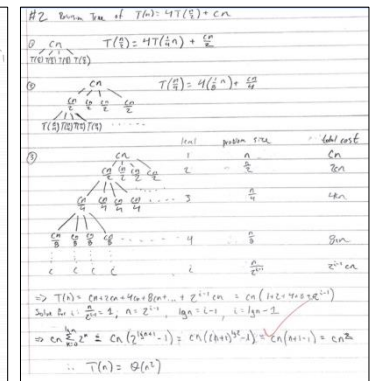 #2 Recursion Tree of T(n) = 4T(n/2) + cn
① cn T(n/2) = 4T(1/4 n) + cn/2
T(n/2) T(n/2) T(n/2) T(n/2)
② cn T(n/4) = 4(1/8 n) + cn/4
cn/2 cn/2 cn/2 cn/2
T(n/4) T(n/4) T(n/4) T(n/4) ......
level problem size total cost
③ cn 1 n cn
cn/2 cn/2 cn/2 cn/2 2 n/2 2cn
cn/4 cn/4 cn/4 cn/4 ...... 3 n/4 4cn
cn/8 cn/8 cn/8 cn/8 ...... 4 n/8 8cn
c c c c i 2^(i-1) cn
=> T(n) = cn + 2cn + 4cn + 8cn + ... 2^(i-1) cn = cn(1+2+4+8+2^(i-1))
Solve for i: = 1, n = 2^(i-1) lgn = i-1, i = lgn - 1
∴ T(n) = Θ(n²)